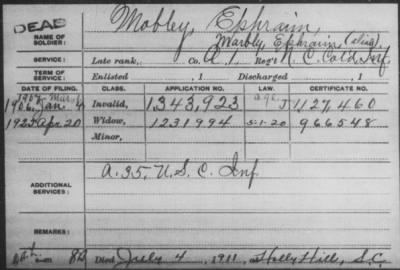 DEAD
Mobley, Ephraim,
NAME OF SOLDIER:
Marbly, Ephraim (alias)
SERVICE: Late rank, Co. A 1, Reg't N. C. Cold Inf
TERM OF SERVICE: Enlisted , 1 Discharged , 1
DATE OF FILING. CLASS. APPLICATION NO. LAW. CERTIFICATE NO.
1907 Mar age
1906, Jan. 4 Invalid, 1,343,923 J 1,127,460
1923 Apr 20 Widow, 1231994 5-1-20 966548
Minor,
ADDITIONAL SERVICES: A. 35, U.S.C. Inf
REMARKS:
Died July 4, 1911, at Holly Hill, S.C.